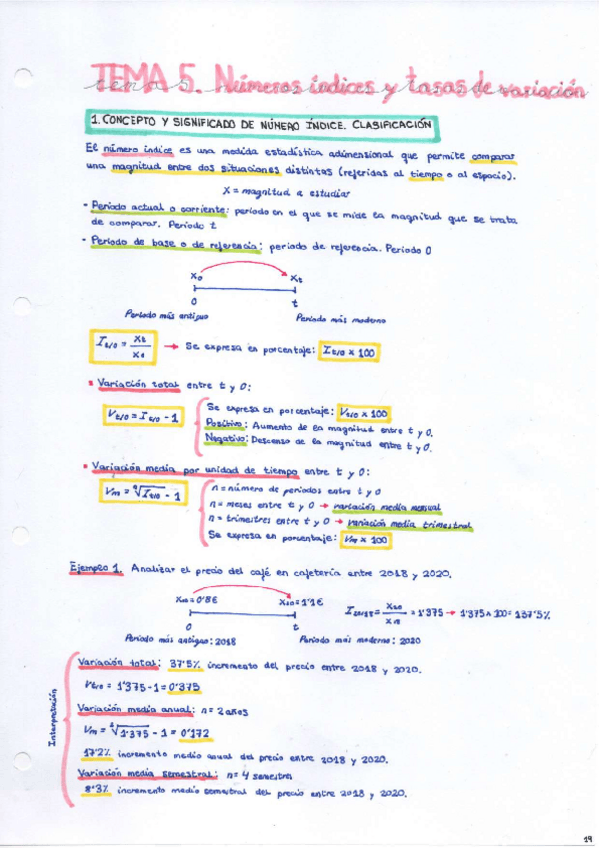 TEMA 5. Números índices y tasas de variación
1. CONCEPTO Y SIGNIFICADO DE NÚMERO ÍNDICE. CLASIFICACIÓN
El número índice es una medida estadística adimensional que permite comparar
una magnitud entre dos situaciones distintas (referidas al tiempo o al espacio).
X = magnitud a estudiar
- Periodo actual o corriente: periodo en el que se mide la magnitud que se trata
de comparar. Periodo t
- Periodo de base o de referencia: periodo de referencia. Periodo 0
X₀ Xt
0 t
Periodo más antiguo Periodo más moderno
It/0 = Xt / X₀ → Se expresa en porcentaje: It/0 × 100
Variación total entre t y 0:
Vt/0 = It/0 - 1
Se expresa en porcentaje: Vt/0 × 100
Positivo: Aumento de la magnitud entre t y 0.
Negativo: Descenso de la magnitud entre t y 0.
Variación media por unidad de tiempo entre t y 0:
Vm = ⁿ√It/0 - 1
n = número de periodos entre t y 0
n = meses entre t y 0 → variación media mensual
n = trimestres entre t y 0 → variación media trimestral
Se expresa en porcentaje: Vm × 100
Ejemplo 1. Analizar el precio del café en cafetería entre 2018 y 2020.
X₁₈ = 0'8€ X₂₀ = 1'1€
I 20/18 = X₂₀ / X₁₈ = 1'375 → 1'375 × 100 = 137'5%
0 t
Periodo más antiguo: 2018 Periodo más moderno: 2020
Interpretación
Variación total: 37'5% incremento del precio entre 2018 y 2020.
Vt/0 = 1'375 - 1 = 0'375
Variación media anual: n = 2 años
Vm = ²√1'375 - 1 = 0'172
17'2% incremento medio anual del precio entre 2018 y 2020.
Variación media semestral: n = 4 semestres
8'3% incremento medio semestral del precio entre 2018 y 2020.
19